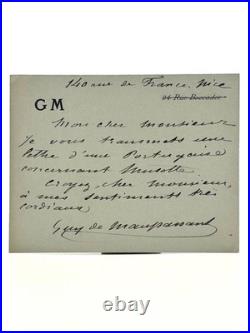 140 rue de France. Nice
24 Rue Boccador
GM
Mon cher monsieur
Je vous transmets une
lettre d'une Portugaise
concernant Musotte.
Croyez, cher monsieur,
à mes sentiments très
cordiaux
Guy de Maupassant